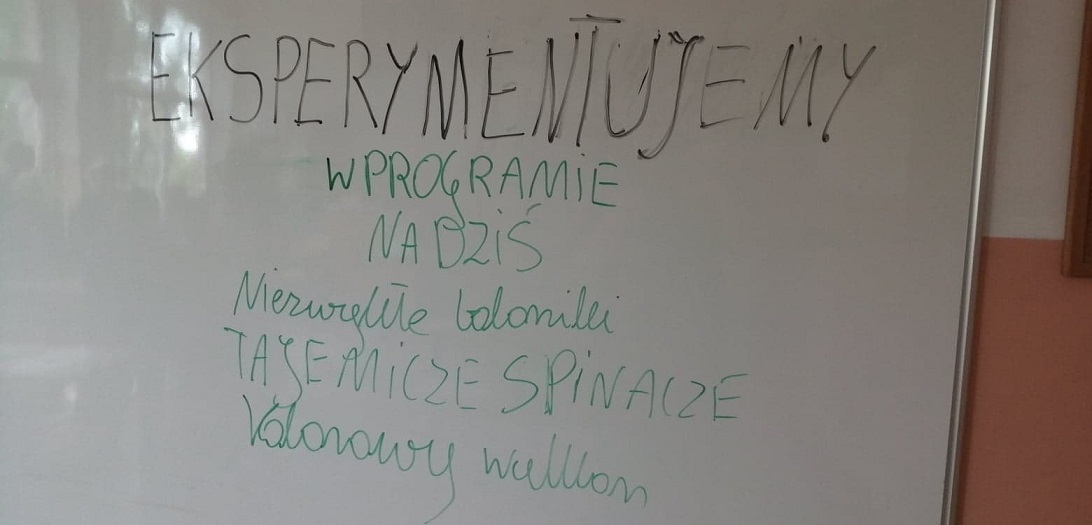 EKSPERYMENTUJEMY
W PROGRAMIE
NA DZIŚ
Niezwykłe baloniki
TAJEMICZE SPINACZE
Kolorowy wulkan